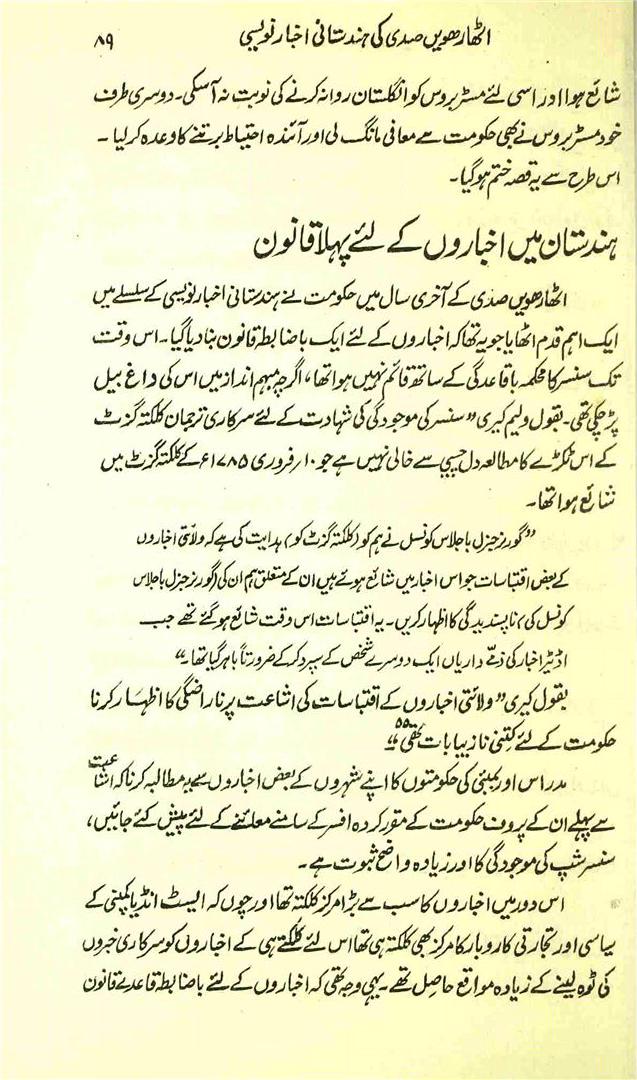 اٹھارھویں صدی کی ہندستانی اخبار نویسی ۸۹
شائع ہوا اور اسی لئے مسٹر بروس کو انگلستان روانہ کرنے کی نوبت نہ آسکی۔ دوسری طرف
خود مسٹر بروس نے بھی حکومت سے معافی مانگ لی اور آئندہ احتیاط برتنے کا وعدہ کر لیا۔
اس طرح سے یہ قصہ ختم ہوگیا۔
ہندستان میں اخباروں کے لئے پہلا قانون
اٹھارھویں صدی کے آخری سال میں حکومت نے ہندستانی اخبار نویسی کے سلسلے میں
ایک اہم قدم اٹھایا جو یہ تھا کہ اخباروں کے لئے ایک باضابطہ قانون بنا دیا گیا۔ اس وقت
تک سنسر کا محکمہ باقاعدگی کے ساتھ قائم نہیں ہوا تھا، اگرچہ مبہم انداز میں اس کی داغ بیل
پڑ چکی تھی۔ بقول ولیم کیری ”سنسر کی موجودگی کی شہادت کے لئے سرکاری ترجمان کلکتہ گزٹ
کے اس ٹکڑے کا مطالعہ دل چسپی سے خالی نہیں ہے جو ۱۰ر فروری ۱۷۸۵ء کے کلکتہ گزٹ میں
شائع ہوا تھا۔
”گورنر جنرل باجلاس کونسل نے ہم کو (کلکتہ گزٹ کو) ہدایت کی ہے کہ ولائتی اخباروں
کے بعض اقتباسات جو اس اخبار میں شائع ہوئے ہیں ان کے متعلق ہم ان کی (گورنر جنرل باجلاس
کونسل کی) ناپسندیدگی کا اظہار کریں۔ یہ اقتباسات اس وقت شائع ہو گئے تھے جب
اڈیٹر اخبار کی ذمے داریاں ایک دوسرے شخص کے سپرد کر کے ضرورتاً باہر گیا تھا۔“
بقول کیری ”ولائتی اخباروں کے اقتباسات کی اشاعت پر ناراضگی کا اظہار کرنا
حکومت کے لئے کتنی نازیبا بات تھی“۵۵
مدراس اور بمبئی کی حکومتوں کا اپنے شہروں کے بعض اخباروں سے یہ مطالبہ کرنا کہ اشاعت
سے پہلے ان کے پروف حکومت کے مقرر کردہ افسر کے سامنے معائنے کے لئے پیش کئے جائیں،
سنسر شپ کی موجودگی کا اور زیادہ واضح ثبوت ہے۔
اس دور میں اخباروں کا سب سے بڑا مرکز کلکتہ تھا اور چوں کہ ایسٹ انڈیا کمپنی کے
سیاسی اور تجارتی کاروبار کا مرکز بھی کلکتہ ہی تھا اس لئے کلکتے ہی کے اخباروں کو سرکاری خبروں
کی ٹوہ لینے کے زیادہ مواقع حاصل تھے۔ یہی وجہ تھی کہ اخباروں کے لئے باضابطہ قاعدے قانون